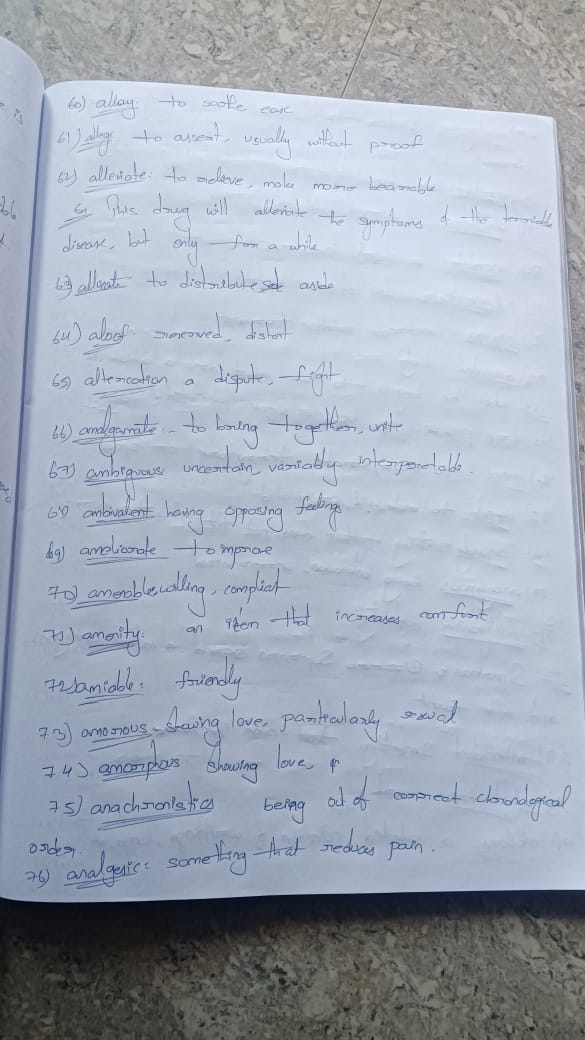 60) allay: to soothe ease
61) allege to assert, usually without proof
62) alleviate: to relieve, make more bearable
This drug will alleviate the symptoms of the terrible
disease, but only for a while
63) allocate to distribute set aside
64) aloof reserved, distant
65) altercation a dispute, fight
66) amalgamate:- to bring together, unite
67) ambiguous uncertain, variably interpretable.
68) ambivalent having opposing feelings
69) ameliorate to improve
70) amenable willing, compliat
71) amenity: an item that increases comfort
72) amiable: friendly
73) amorous- showing love, particularly sexual
74) amorphous showing love,
75) anachronistics being out of correct chronological
order.
76) analgesic: something that reduces pain.